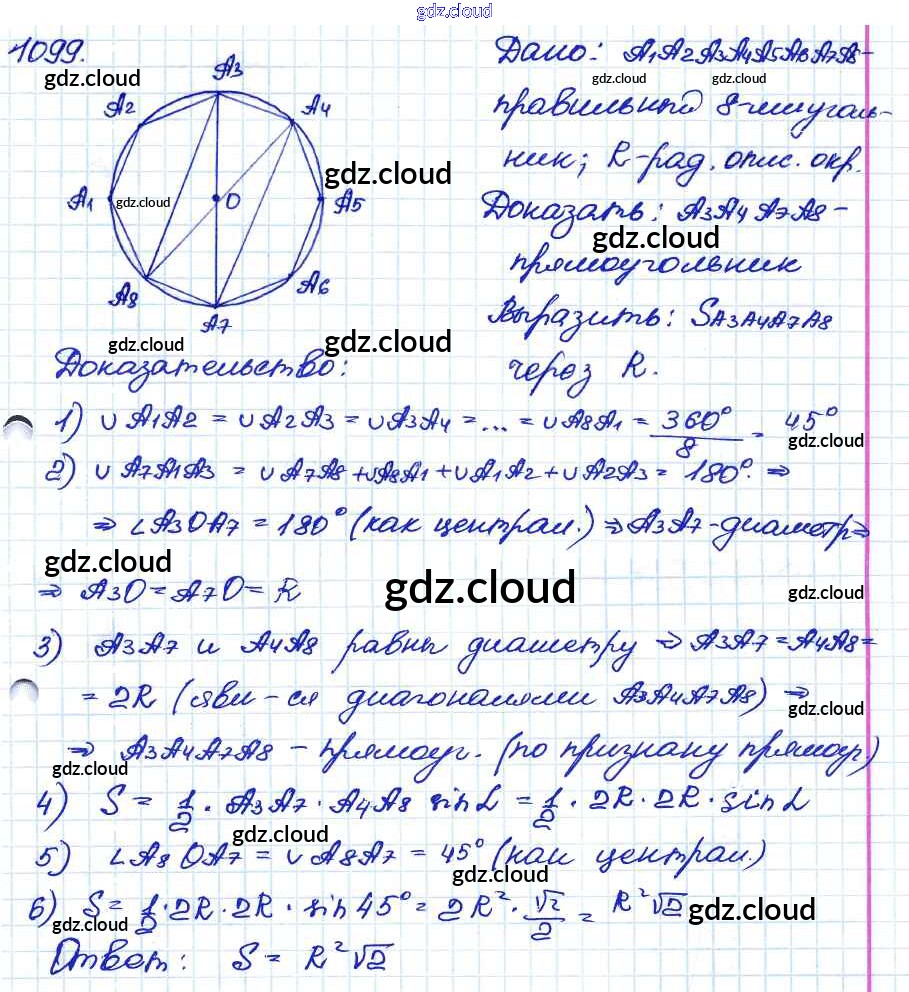 gdz.cloud
1099.
gdz.cloud
A3
A2
A4
A1
gdz.cloud
O
A5
gdz.cloud
A8
A6
A7
gdz.cloud
Дано: A1A2A3A4A5A6A7A8-
gdz.cloud gdz.cloud
правильный 8-миуголь-
ник; R-рад. опис. окр.
Доказать: A3A4A7A8-
gdz.cloud
прямоугольник
Выразить: SA3A4A7A8
через R.
gdz.cloud
Доказательство:
1) ∪A1A2 = ∪A2A3 = ∪A3A4 = ... = ∪A8A1 = 360°/8 = 45°
gdz.cloud
2) ∪A7A1A3 = ∪A7A8 + ∪A8A1 + ∪A1A2 + ∪A2A3 = 180°. ⇒
⇒ ∠A3OA7 = 180° (как централ.) ⇒ A3A7-диаметр ⇒
gdz.cloud gdz.cloud gdz.cloud
⇒ A3O = A7O = R
3) A3A7 и A4A8 равны диаметру ⇒ A3A7 = A4A8 =
= 2R (явл-ся диагоналями A3A4A7A8) ⇒
gdz.cloud
⇒ A3A4A7A8 - прямоуг. (по признаку прямоуг.)
gdz.cloud
4) S = 1/2 · A3A7 · A4A8 sin L = 1/2 · 2R · 2R · sin L
gdz.cloud
5) ∠A8OA7 = ∪A8A7 = 45° (как централ.)
gdz.cloud
6) S = 1/2 · 2R · 2R · sin 45° = 2R² · √2/2 = R²√2
gdz.cloud
Ответ: S = R²√2